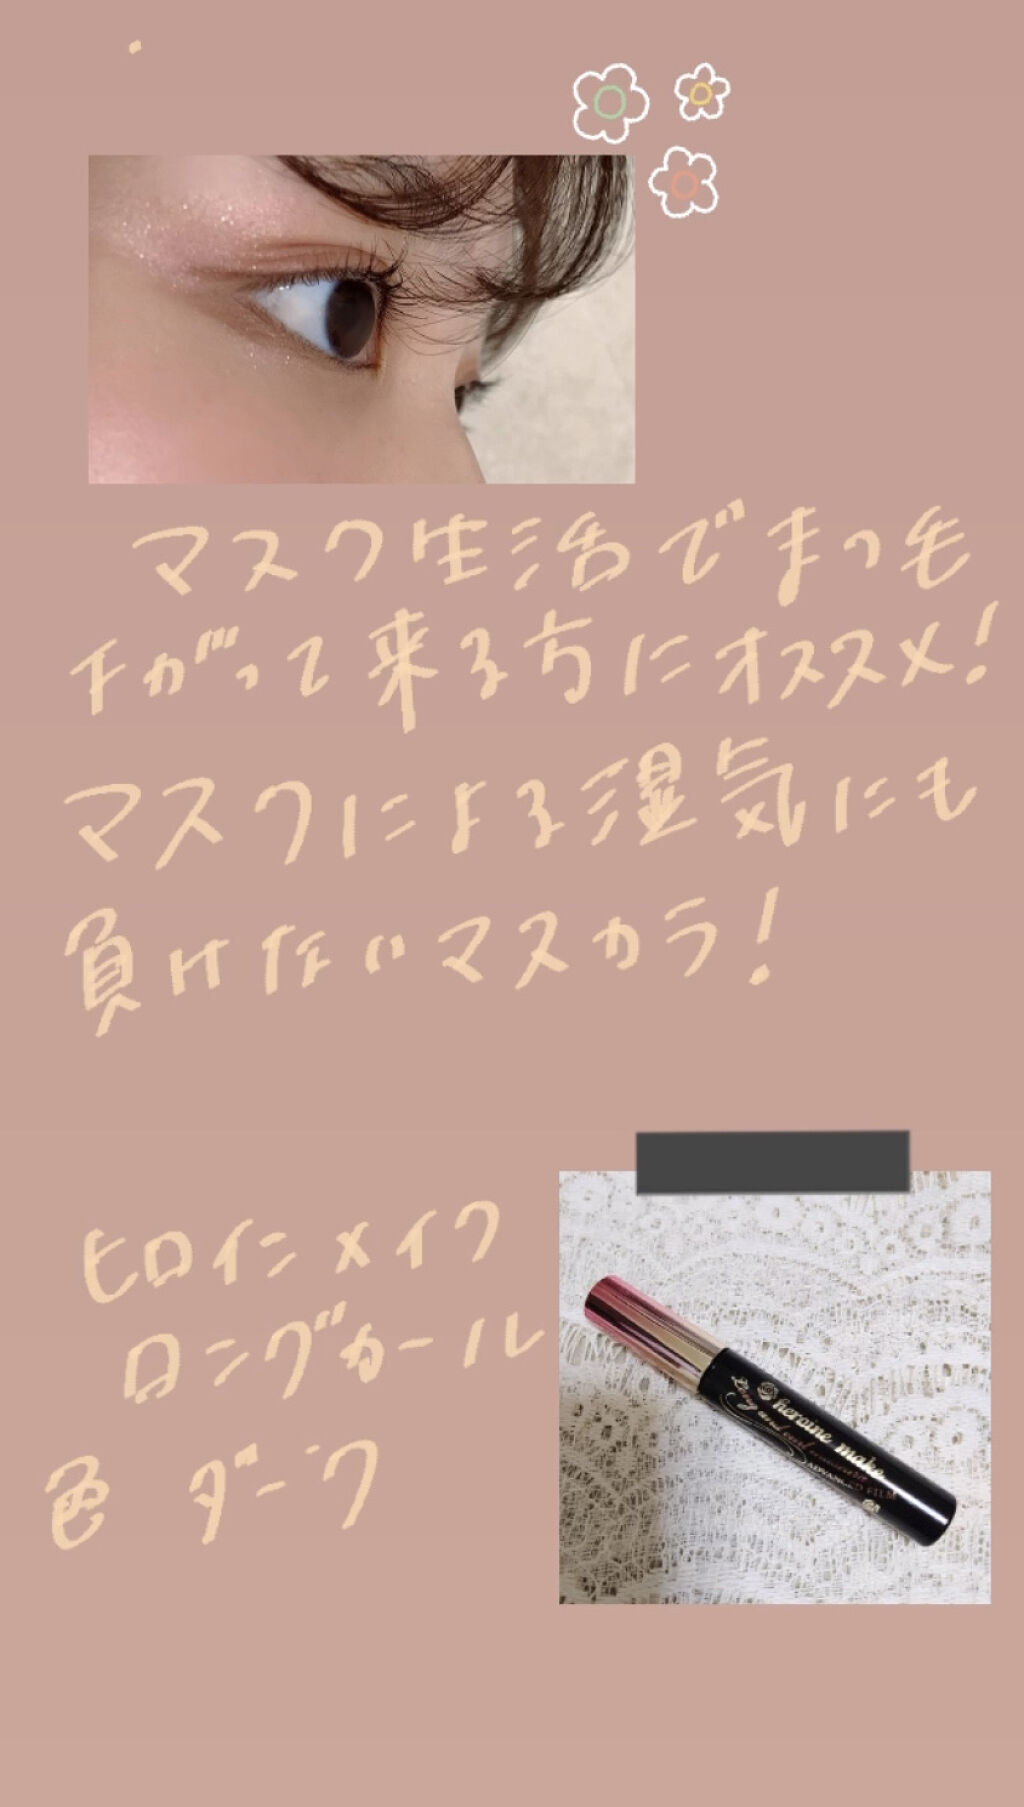 マスク生活でまつ毛
下がって来る方にオススメ!
マスクによる湿気にも
負けないマスカラ!
ヒロインメイク
ロングカール
色 ダーク
heroine make
Long and curl mascara
ADVANCED FILM